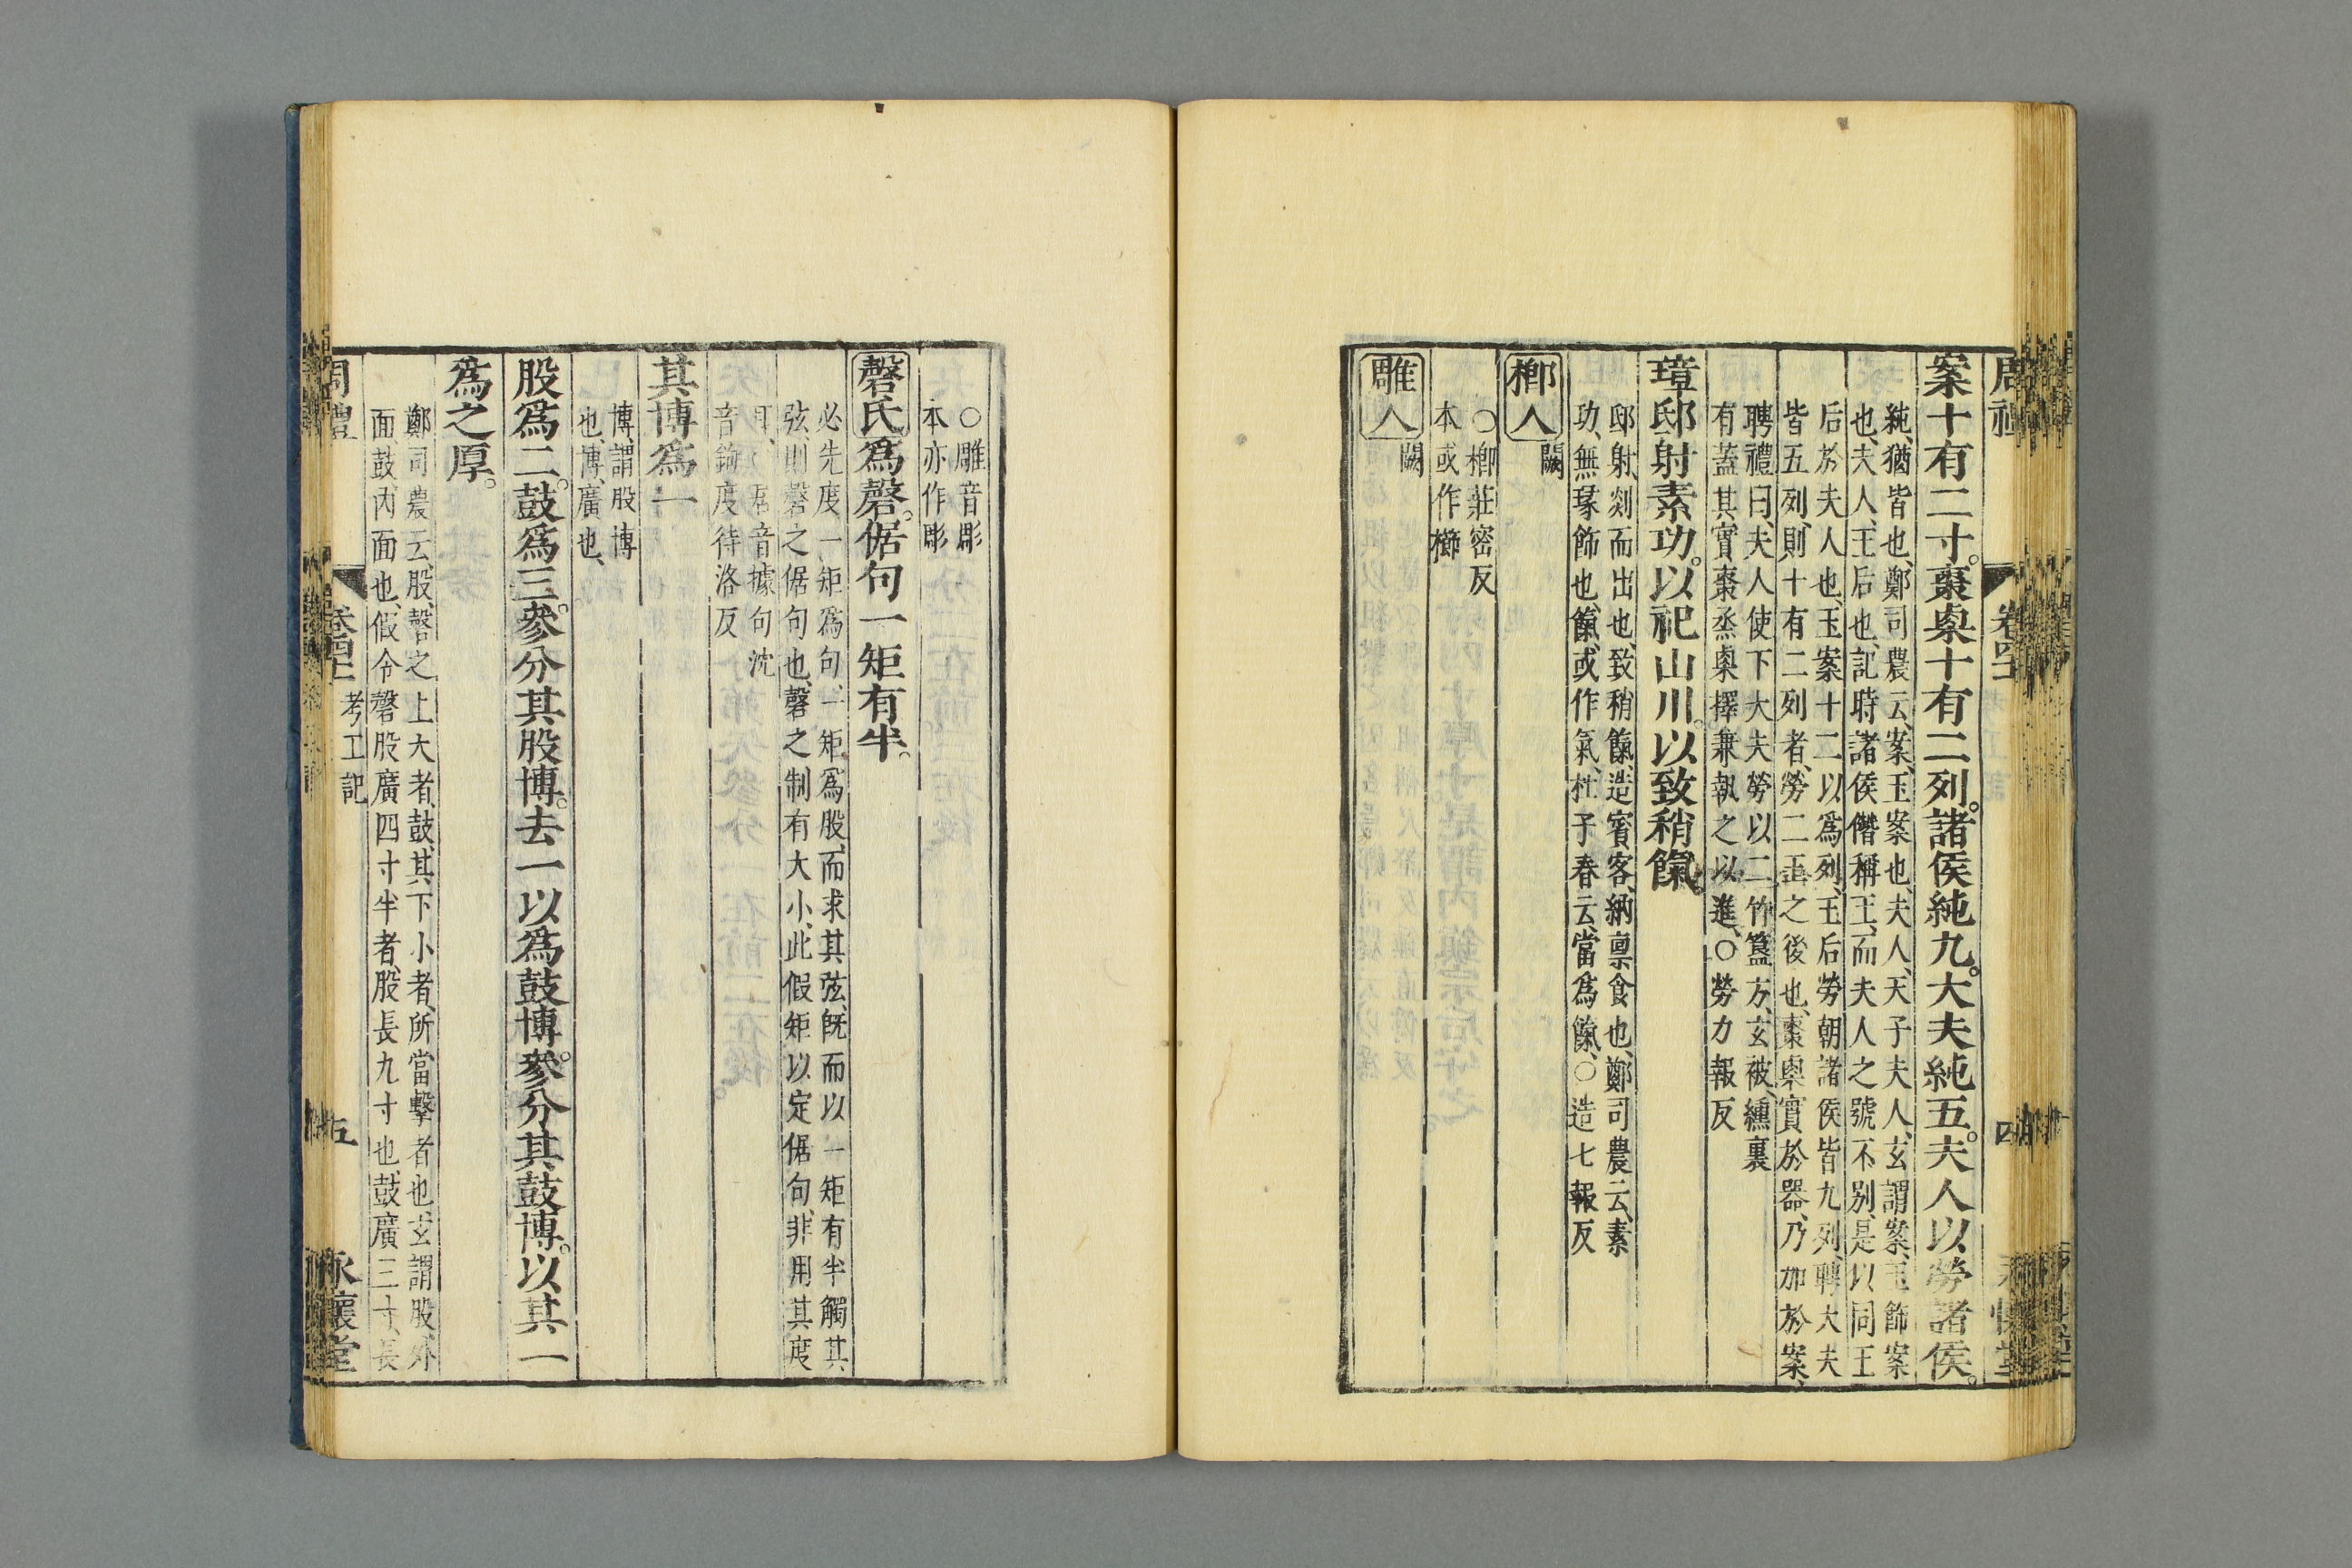 周禮
卷四十
四
案十有二寸。棗㮚十有二列。諸侯純九。大夫純五。夫人以勞諸侯。
純、猶皆也、鄭司農云、案、玉案也、夫人、天子夫人、玄謂案、玉飾案
也、夫人、王后也、記時諸侯僭稱王、而夫人之號不別、是以同王
后於夫人也、玉案十二以爲列、王后勞朝諸侯皆九列、聘大夫
皆五列、則十有二列者、勞二王之後也、棗㮚實於器、乃加於案、
聘禮曰、夫人使下大夫勞以二竹簋方、玄被、纁裏
有蓋其實棗烝㮚擇、兼執之以進、○勞力報反
璋邸射素功。以祀山川。以致稍餼。
邸射、剡而出也、致稍餼、造賓客、納稟食也、鄭司農云、素
功、無瑑飾也、餼、或作氣、杜子春云、當爲餼、○造七報反
楖人闕
○楖莊密反
本或作櫛
雕人闕
○雕音彫
本亦作彫
磬氏爲磬。倨句一矩有半。
必先度一矩爲句、一矩爲股、而求其弦、旣而以一矩有半觸其
弦、則磬之倨句也、磬之制有大小、此假矩以定倨句、非用其度
耳、倨音據句沈
音鉤度待洛反
其博爲一
博、謂股博
也、博、廣也、
股爲二。鼓爲三。參分其股博。去一以爲鼓博。參分其鼓博。以其一
爲之厚。
鄭司農云、股、磬之上大者、鼓、其下小者、所當擊者也、玄謂股、外
面、鼓、內面也、假令磬股廣四寸半者、股長九寸也、鼓廣三寸、長
周禮
考工記
五
永懷堂